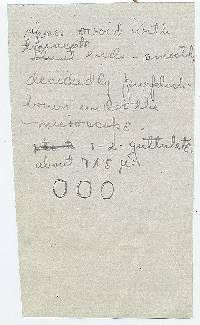 ovoid with
ends - smooth,
decidedly purplish-
brown under the
microscope.
1-2-guttulate,
about 7 x 5 µ.